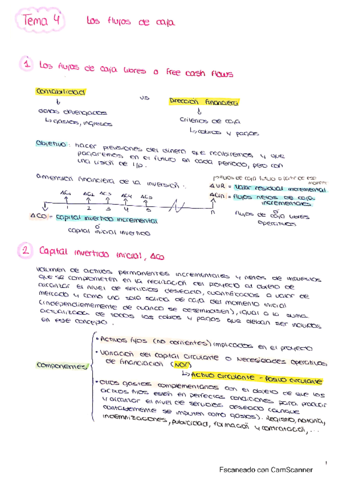 Tema 4 Los flujos de caja
1 Los flujos de caja libres o free cash flows
Contabilidad vs Dirección Financiera
datos devengados Criterios de caja
↳ gastos, ingresos ↳ cobros y pagos
Objetivo: hacer previsiones del dinero que recibiremos y que
pagaremos en el futuro en cada periodo, pero con
una visión de
Dimensión financiera de la inversión:
ΔVR = Valor residual incremental
ΔC1 ΔC2 ΔC3 ΔC4 ΔC5
ΔCn = flujos netos de caja
incrementales
1 2 3 4 5 n
flujos de caja libres
operativos
ΔCo = Capital invertido incremental
o
capital inicial invertido
2 Capital invertido inicial, ΔCo
Volumen de activos permanentes incrementales y netos de
que se comprometen en la realización del proyecto al objeto de
alcanzar el nivel de servicios deseado, cuantificados a valor de
mercado y como una sola salida de caja del momento inicial
(independientemente de cuando se desembolsen), igual a la suma
actualizada de todos los cobros y pagos que deban ser incluidos
en este concepto.
Componentes
• Activos fijos (no corrientes) implicados en el proyecto
• Variación del capital circulante o necesidades operativas
de financiación (NOF)
↳ Activo circulante - Pasivo circulante
• Otros gastos complementarios con el objeto de que los
activos fijos estén en perfectas condiciones para producir
y alcanzar el nivel de servicios deseado (aunque
contablemente se imputen como gastos). Registro, notaría,
indemnizaciones, publicidad, formación y contratación, ...
1
Escaneado con CamScanner